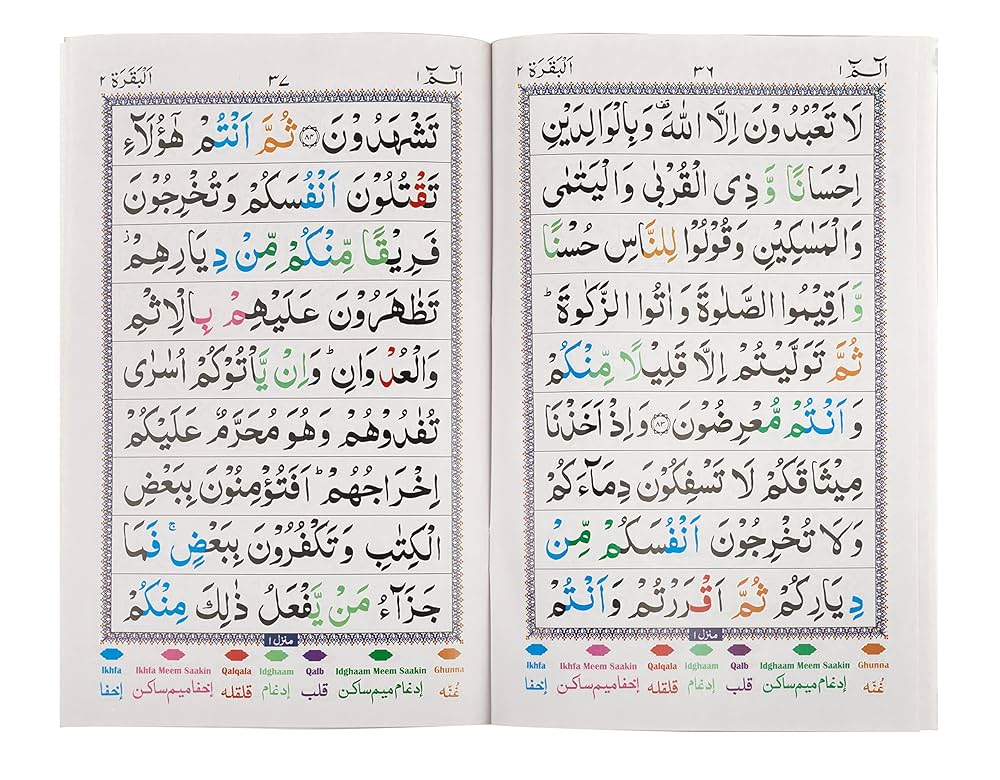 الٓمّٓ ١
٣٦
اَلْبَقَرَة ٢
لَا تَعْبُدُوْنَ اِلَّا اللّٰهَ وَبِالْوَالِدَيْنِ
اِحْسَانًا وَّ ذِى الْقُرْبٰى وَالْيَتٰمٰى
وَالْمَسٰكِيْنِ وَقُوْلُوْا لِلنَّاسِ حُسْنًا
وَّ اَقِيْمُوا الصَّلٰوةَ وَاٰتُوا الزَّكٰوةَ ؕ
ثُمَّ تَوَلَّيْتُمْ اِلَّا قَلِيْلًا مِّنْكُمْ
وَ اَنْتُمْ مُّعْرِضُوْنَ ۝٨٣ وَاِذْ اَخَذْنَا
مِيْثَاقَكُمْ لَا تَسْفِكُوْنَ دِمَآءَكُمْ
وَلَا تُخْرِجُوْنَ اَنْفُسَكُمْ مِّنْ
دِيَارِكُمْ ثُمَّ اَقْرَرْتُمْ وَاَنْتُمْ
منزل ١
Ikhfa Ikhfa Meem Saakin Qalqala Idghaam Qalb Idghaam Meem Saakin Ghunna
غُنّه إدغام ميم ساكن قلب إدغام قلقله إخفا ميم ساكن إخفا
الٓمّٓ ١
٣٧
اَلْبَقَرَة ٢
تَشْهَدُوْنَ ۝٨٤ ثُمَّ اَنْتُمْ هٰٓؤُلَآءِ
تَقْتُلُوْنَ اَنْفُسَكُمْ وَتُخْرِجُوْنَ
فَرِيْقًا مِّنْكُمْ مِّنْ دِيَارِهِمْ ز
تَظٰهَرُوْنَ عَلَيْهِمْ بِالْاِثْمِ
وَالْعُدْوَانِ ؕ وَاِنْ يَّاْتُوْكُمْ اُسٰرٰى
تُفٰدُوْهُمْ وَهُوَ مُحَرَّمٌ عَلَيْكُمْ
اِخْرَاجُهُمْ ؕ اَفَتُؤْمِنُوْنَ بِبَعْضِ
الْكِتٰبِ وَتَكْفُرُوْنَ بِبَعْضٍ ۚ فَمَا
جَزَآءُ مَنْ يَّفْعَلُ ذٰلِكَ مِنْكُمْ
منزل ١
Ikhfa Ikhfa Meem Saakin Qalqala Idghaam Qalb Idghaam Meem Saakin Ghunna
غُنّه إدغام ميم ساكن قلب إدغام قلقله إخفا ميم ساكن إخفا